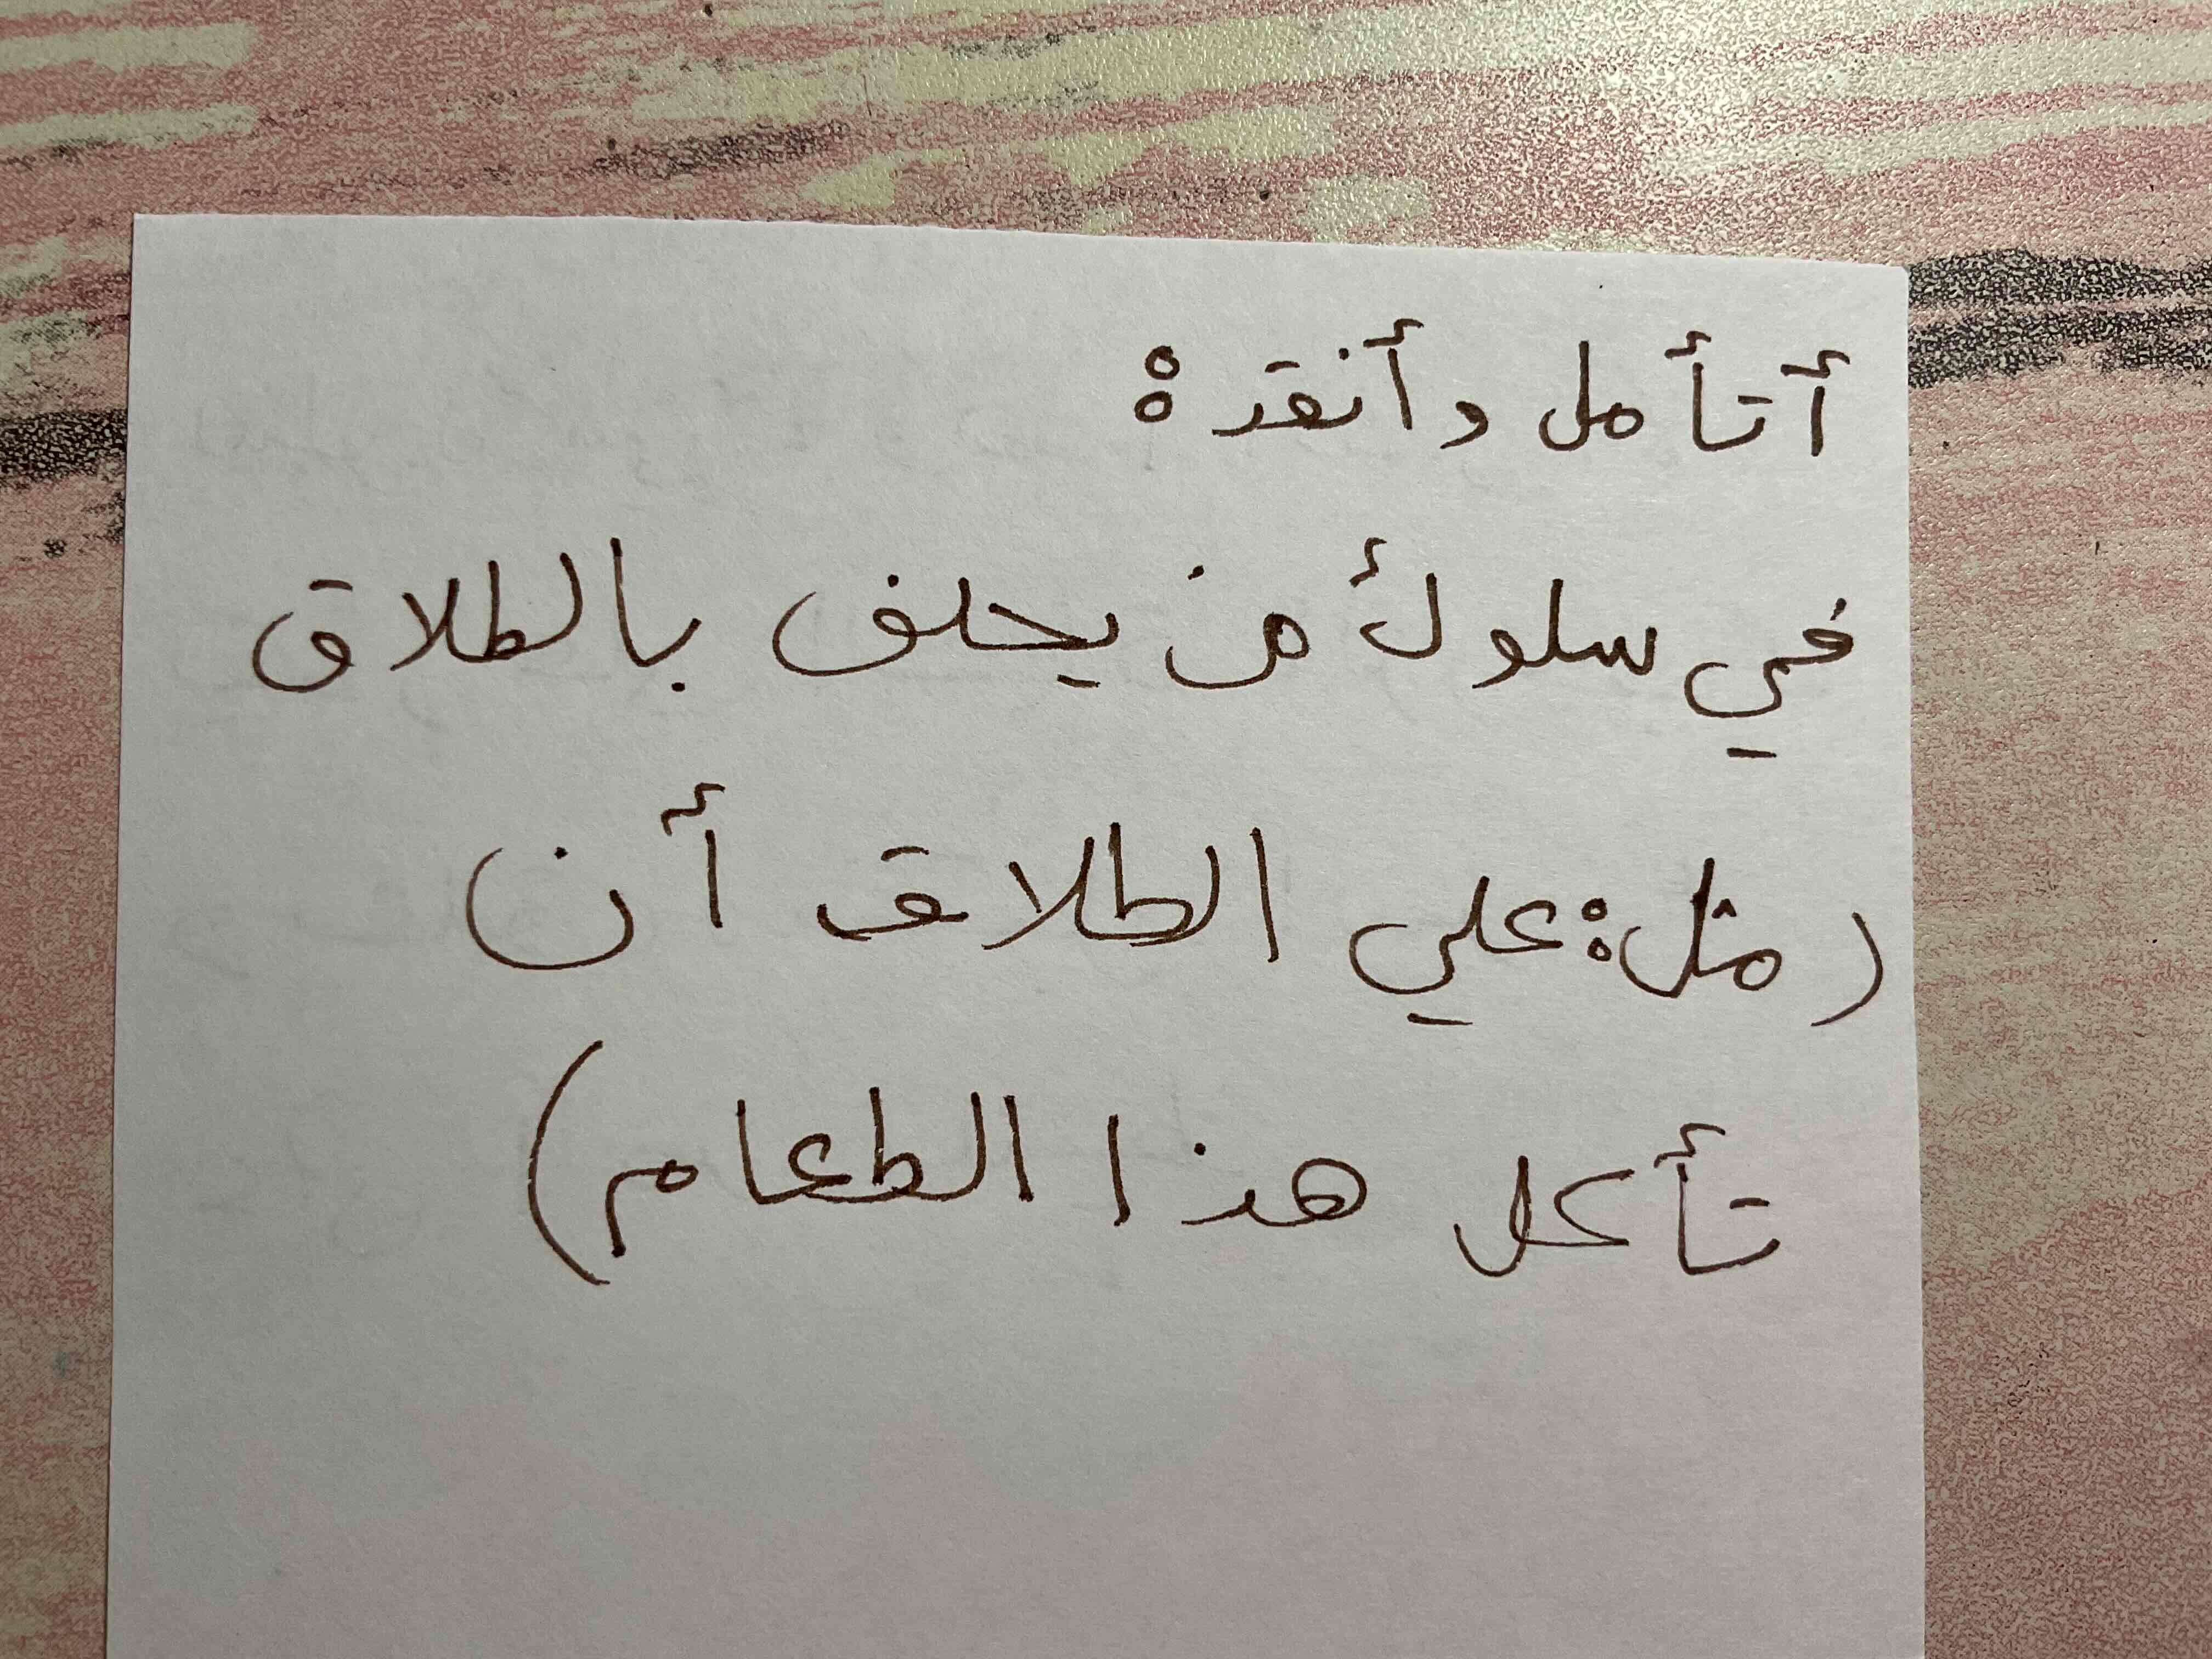 أتأمل وأنقد:
في سلوك من يحلف بالطلاق
(مثل: علي الطلاق أن
تأكل هذا الطعام)